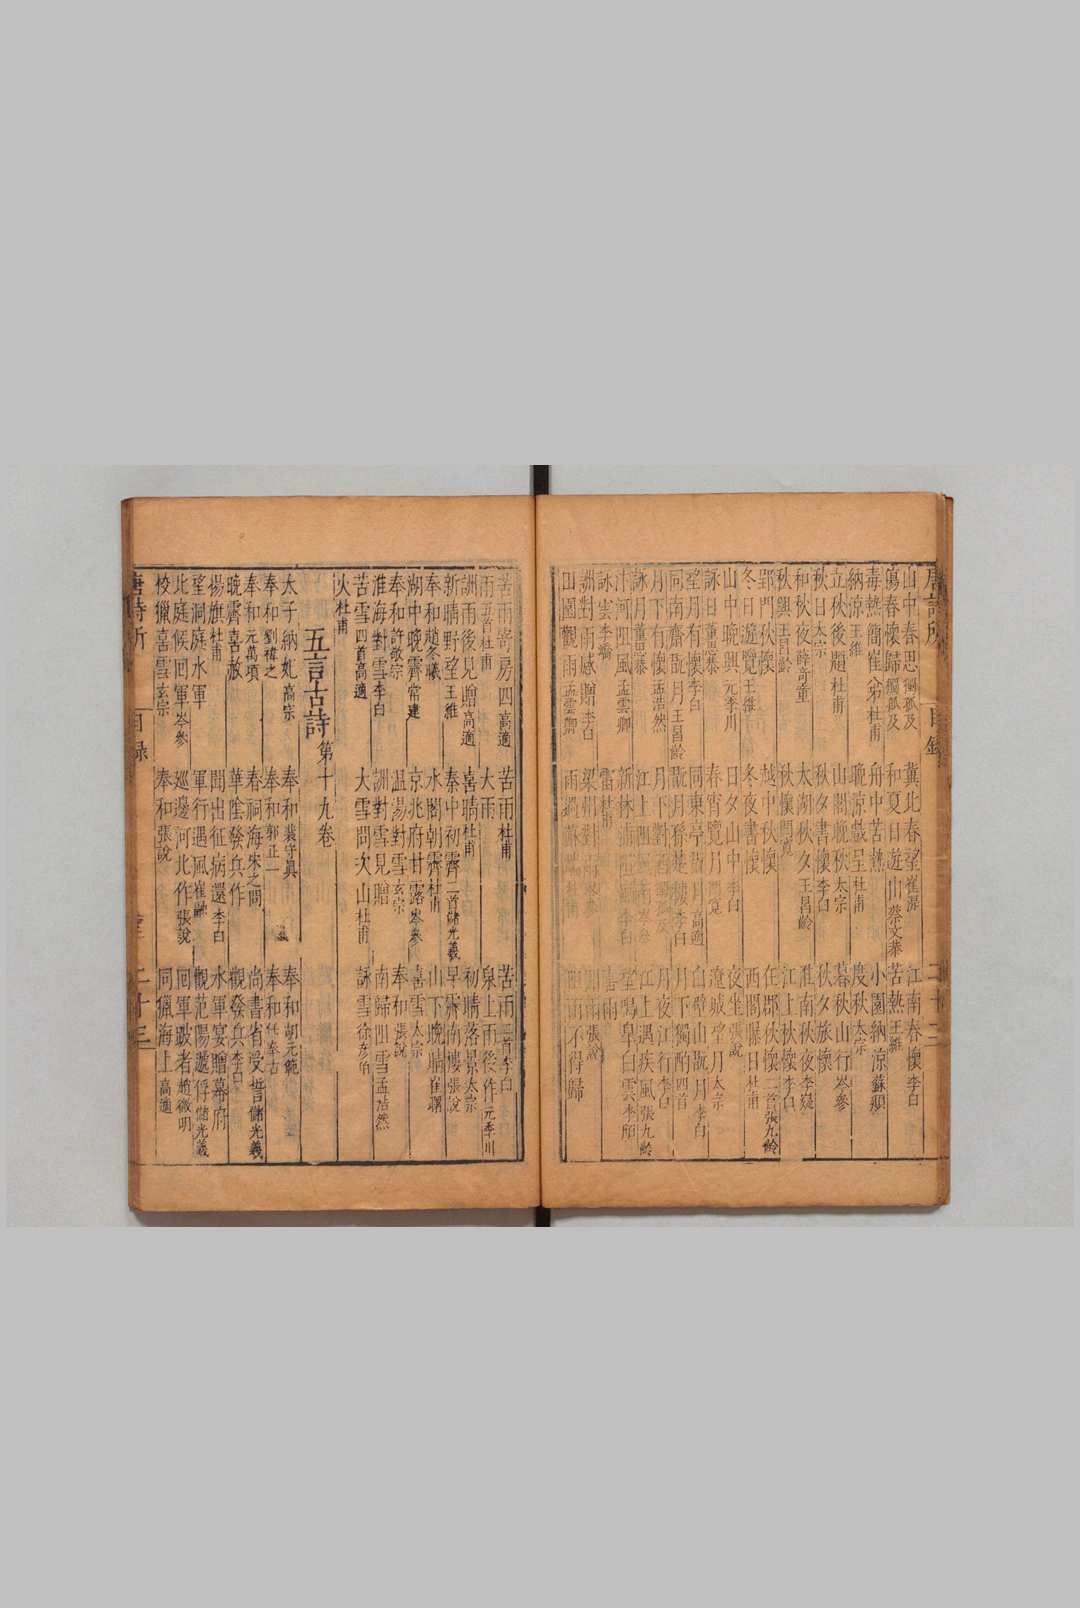 山中春思獨孤及 冀北春望崔湜 江南春懷李白
傷春懷歸獨孤及 和夏日遊山蔡文恭 苦熱王維
毒熱簡崔六弟杜甫 舟中苦熱 小園納涼蘇頲
納涼王維 晚涼戲呈杜甫 度秋太宗
立秋後題杜甫 山閣晚秋太宗 暮秋山行岑參
秋日太宗 秋夕書懷李白 秋夕旅懷
和秋夜薛奇童 太湖秋夕王昌齡 淮南秋夜李嶷
秋興王昌齡 秋懷 江上秋懷李白
郢門秋懷 越中秋懷 在郡秋懷二首張九齡
冬日遊覽王維 冬夜書懷 西閣曝日杜甫
山中晚興元季川 日夕山中李白 夜坐張說
詠日董思恭 春宵覽月 遼城望月太宗
望月有懷李白 同東亭翫月高適 白壁山翫月李白
同南齋翫月王昌齡 翫月登楚樓李白 月下獨酌四首
月下有懷孟浩然 月下 月夜江行李白
詠月董思恭 江上阻風岑參 江上遇疾風張九齡
汴河阻風孟雲卿 新林浦阻風李白 望鳴皋白雲李頎
詠雲李嶠 雷杜甫 喜雨
酬對雨感贈李白 對雨 對雨張說
田園觀雨孟雲卿 雨過蘇端杜甫 阻雨不得歸
苦雨寄房四高適 苦雨杜甫 苦雨三首李白
雨五首杜甫 大雨 泉上雨後作元季川
酬雨後見贈高適 喜晴杜甫 初晴落景太宗
新晴野望王維 秦中初霽二首儲光羲 早霽南樓張說
奉和趙冬曦 水閣朝霽杜甫 山下晚晴崔曙
湖中晚霽常建 京兆府甘露岑參 喜雪太宗
奉和許敬宗 溫湯對雪玄宗 奉和張說
淮海對雪李白 酬對雪見贈 南歸阻雪孟浩然
苦雪四首高適 大雪問次山杜甫 詠雪徐彥伯
火杜甫
五言古詩第十九卷
太子納妃高宗 奉和裴守真 奉和胡元範
奉和劉禕之 奉和郭正一 奉和任奉古
奉和元萬頃 春祠海宋之問 尚書省受誓儲光羲
晚霽喜赦 華陰發兵作 觀發兵李白
揚旗杜甫 聞出征病還李白 水軍宴贈幕府
望洞庭水軍 軍行遇風崔融 觀范陽遞俘儲光羲
北庭候回軍岑參 巡邊河北作張說 回軍跛者趙微明
校獵喜雪玄宗 奉和張說 同獵海上高適
唐詩所 目錄